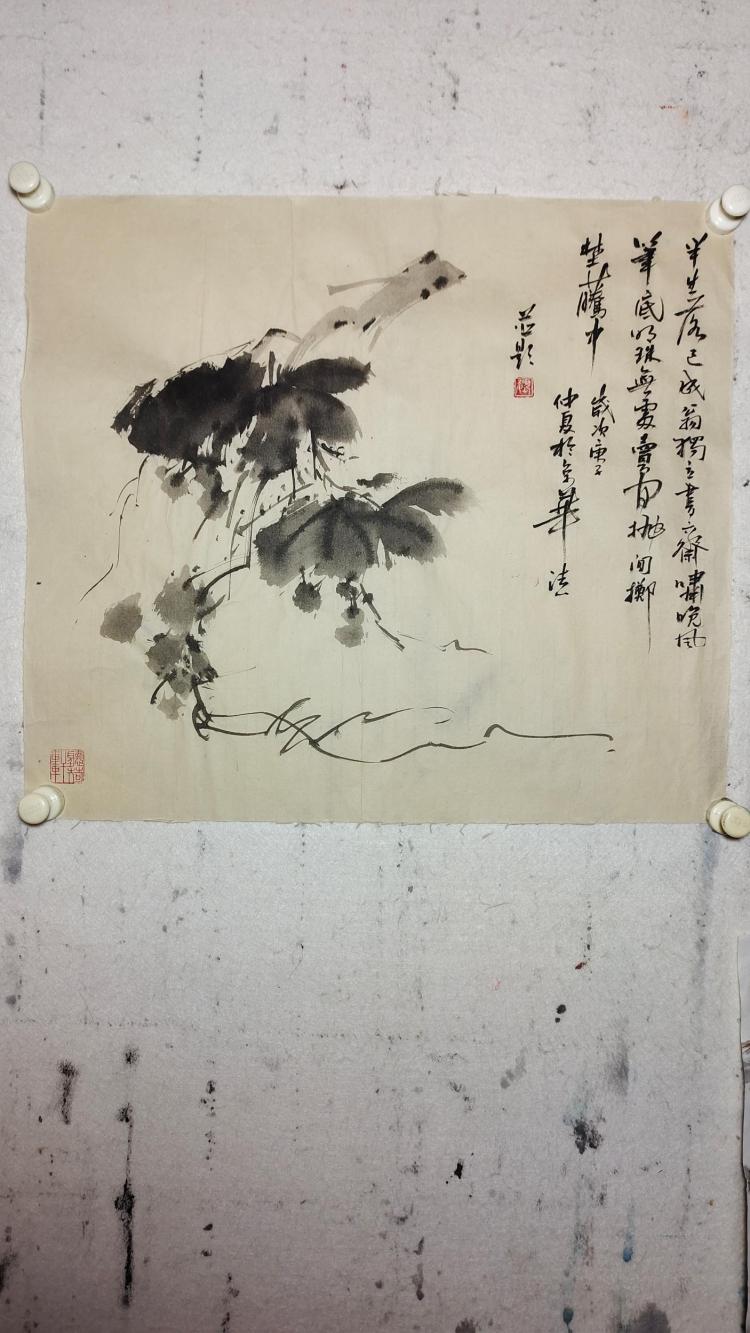 半生落已成翁獨立書齋嘯晚風
筆底明珠無處賣閒抛閒擲
埜藤中
歲次庚子
仲夏於京華
題